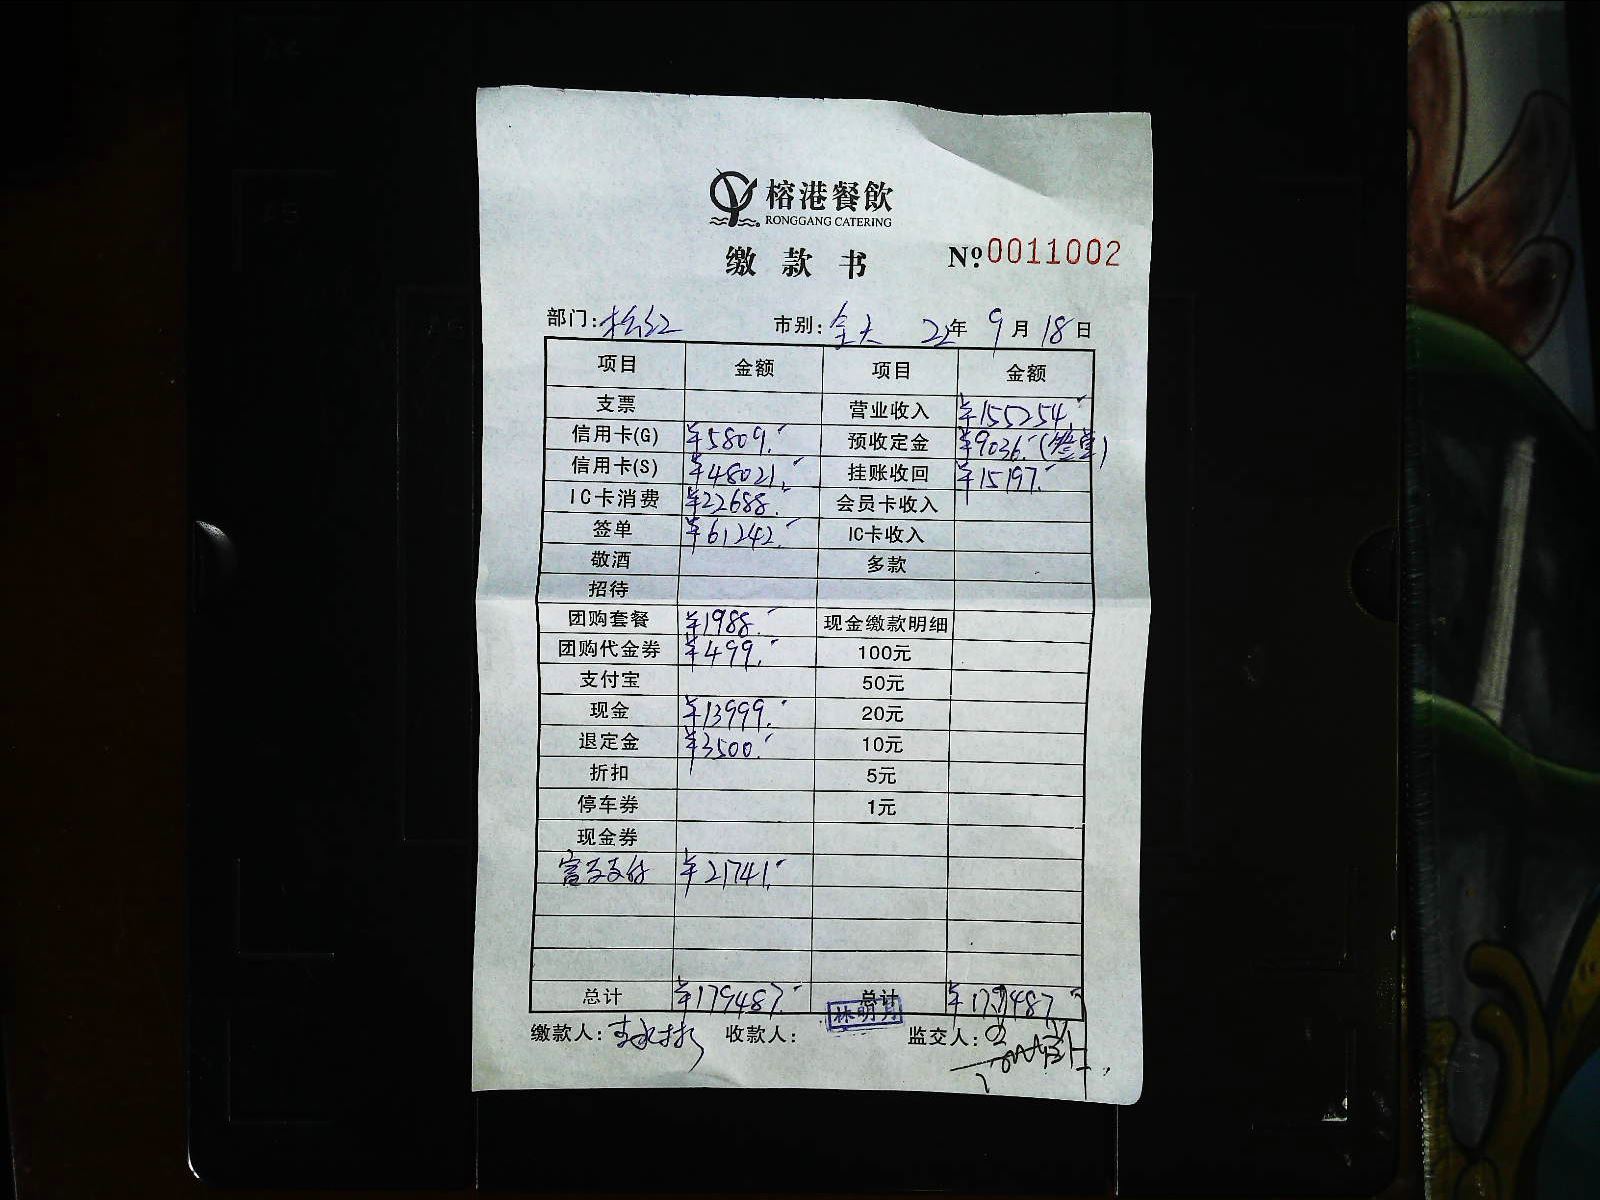 榕港餐飲
RONGGANG CATERING
缴款书 Nº 0011002
部门: 市别:全天 22年9月18日
项目 金额 项目 金额
支票 营业收入 ¥155254.-
信用卡(G) ¥5809.- 预收定金 ¥9036.-(签单)
信用卡(S) ¥48021.- 挂账收回 ¥15197.-
IC卡消费 ¥22688.- 会员卡收入
签单 ¥61242.- IC卡收入
敬酒 多款
招待
团购套餐 ¥1988.- 现金缴款明细
团购代金券 ¥499.- 100元
支付宝 50元
现金 ¥13999.- 20元
退定金 ¥3500.- 10元
折扣 5元
停车券 1元
现金券
富友支付 ¥21741.-
总计 ¥179487.- 总计 ¥179487.-
缴款人: 收款人:林明月 监交人: